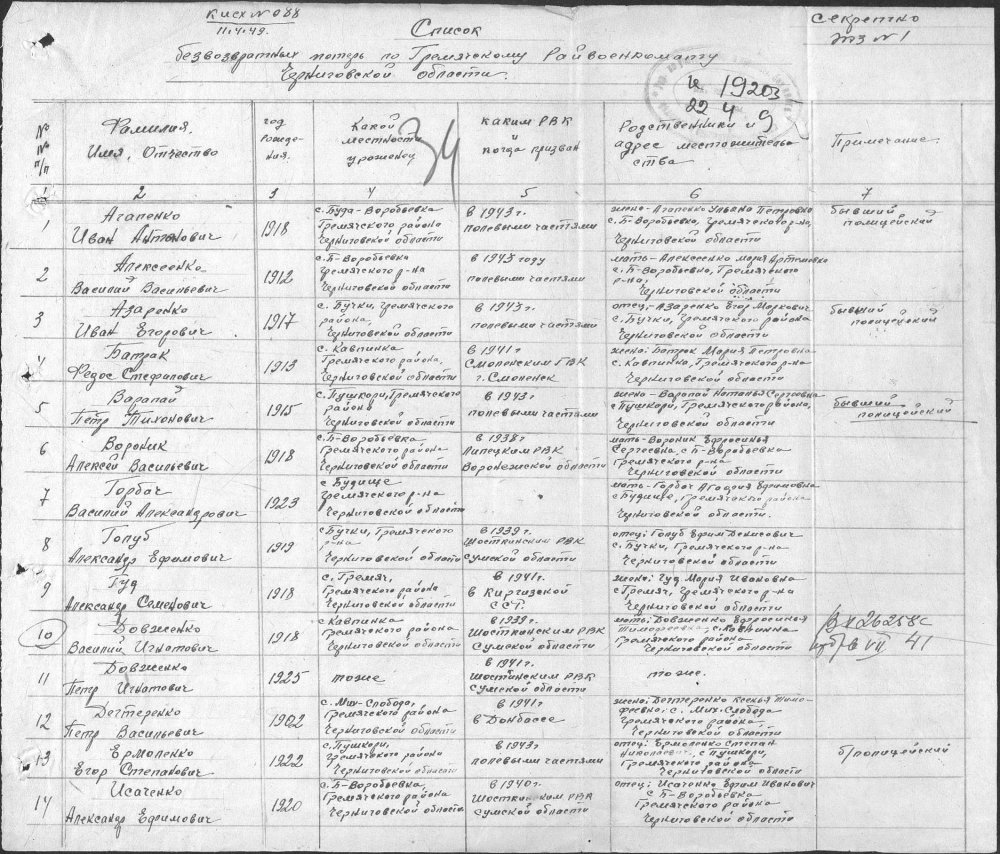 К исх № 088
11.4.49.
Секретно
экз № 1
Список
безвозвратных потерь по Гремячскому Райвоенкомату
Черниговской области.
19203
22 4 9
№ № п/п
Фамилия, Имя, Отчество
год рождения.
Какой местности уроженец
каким РВК и когда призван
Родственники и адрес местожительства
Примечание.
34
1 2 3 4 5 6 7
1
Агапенко
Иван Антонович
1918
с. Буда-Воробьевка
Гремячского района
Черниговской области
в 1943 г.
полевыми частями
жена-Агапенко Ульяна Петровна
с. Б-Воробьевка, Гремячского р-на,
Черниговской области
бывший
полицейский
2
Алексеенко
Василий Васильевич
1912
с. Б-Воробьевка
Гремячского р-на
Черниговской области
в 1943 году
полевыми частями
мать-Алексеенко Мария Артемовна
с. Б-Воробьевка, Гремячского
р-на,
Черниговской области
3
Азаренко
Иван Егорович
1917
с. Бучки, Гремячского
района,
Черниговской области
в 1943 г.
полевыми частями
отец-Азаренко Егор Маркович
с. Бучки, Гремячского района
Черниговской области
бывший
полицейский
4
Батрак
Федос Стефанович
1913
с. Кавпинка
Гремячского района,
Черниговской области
в 1941 г
Смоленским ГВК
г. Смоленск
жена: Батрак Мария Петровна
с. Кавпинка, Гремячского р-на
Черниговской области
5
Варапай
Петр Тихонович
1915
с. Пушкари, Гремячского
района
Черниговской области
в 1943 г
полевыми частями
жена-Варапай Наталья Сергеевна
с Пушкари, Гремячского района,
Черниговской области
бывший
полицейский
6
Вороник
Алексей Васильевич
1918
с. Б-Воробьевка
Гремячского района
Черниговской области
в 1938 г
Липецким РВК
Воронежской области
мать-Вороник Ефросинья
Сергеевна, с Б-Воробьевка
Гремячского р-на
Черниговской области
7
Горбач
Василий Александрович
1923
с Будище
Гремячского р-на
Черниговской области
мать-Горбач Агафия Ефимовна
с Будище, Гремячского района
Черниговской области.
8
Голуб
Александр Ефимович
1919
с Бучки, Гремячского
р-на
Черниговской области
в 1939 г.
Шосткинским РВК
Сумской области
отец: Голуб Ефим Денисович
с. Бучки, Гремячского р-на
Черниговской области
9
Гуд
Александр Семенович
1918
с. Гремяч,
Гремячского района
Черниговской области
в 1941 г.
в Киргизской
ССР.
жена: Гуд Мария Ивановна
с Гремяч, Гремячского р-на
Черниговской области
10
Довженко
Василий Игнатович
1918
с Кавпинка
Гремячского района
Черниговской области
в 1939 г.
Шосткинским РВК
Сумской области
мать: Довженко Ефросинья
Тимофеевна, с. Кавпинка
Гремячского района
Черниговской области
вх 26258с
VII 41
11
Довженко
Петр Игнатович
1925
тоже
в 1941 г.
Шосткинским РВК
Сумской области
тоже.
12
Дегтеренко
Петр Васильевич
1902
с. Мих-Слобода,
Гремячского района
Черниговской области
в 1941 г
в Донбассе
жена: Дегтеренко Ксенья Тимо-
феевна, с. Мих-Слобода
Гремячского района
Черниговской области
13
Ермоленко
Егор Степанович
1922
с. Пушкари,
Гремячского района
Черниговской области
в 1943 г
полевыми частями
отец: Ермоленко Степан
Николаевич, с Пушкари,
Гремячского района
Черниговской области
б/полицейский
14
Исаченко
Александр Ефимович
1920
с. Б-Воробьевка
Гремячского района
Черниговской области
в 1940 г.
Шосткинским РВК
Сумской области
отец: Исаченко Ефим Иванович
с Б-Воробьевка
Гремячского района
Черниговской области